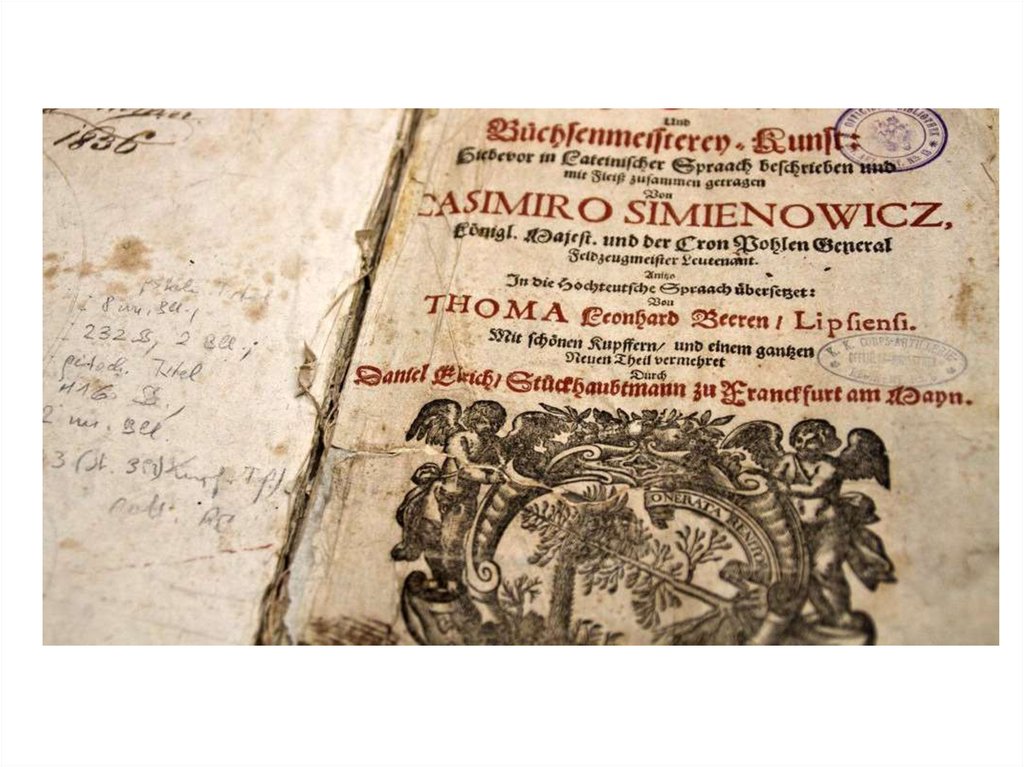 1836
8 un. Bll.,
232 S, 2 Bll.;
Titel
416 S.
2 un. Bll.
Und
Büchsenmeisterey-Kunst:
Hiebevor in Lateinischer Spraach beschrieben und
mit Fleiß zusammen getragen
Von
CASIMIRO SIMIENOWICZ,
Königl. Majest. und der Cron Pohlen General
Feldzeugmeister Leutenant.
Anitzo
In die Hochteutsche Spraach übersetzet:
Von
THOMA Leonhard Beeren / Lipsiensi.
Mit schönen Kupffern/ und einem gantzen
Neuen Theil vermehret
Durch
Daniel Elrich/ Stückhaubtmann zu Franckfurt am Mayn.
K. K. CORPS-ARTILLERIE-
ONERATA